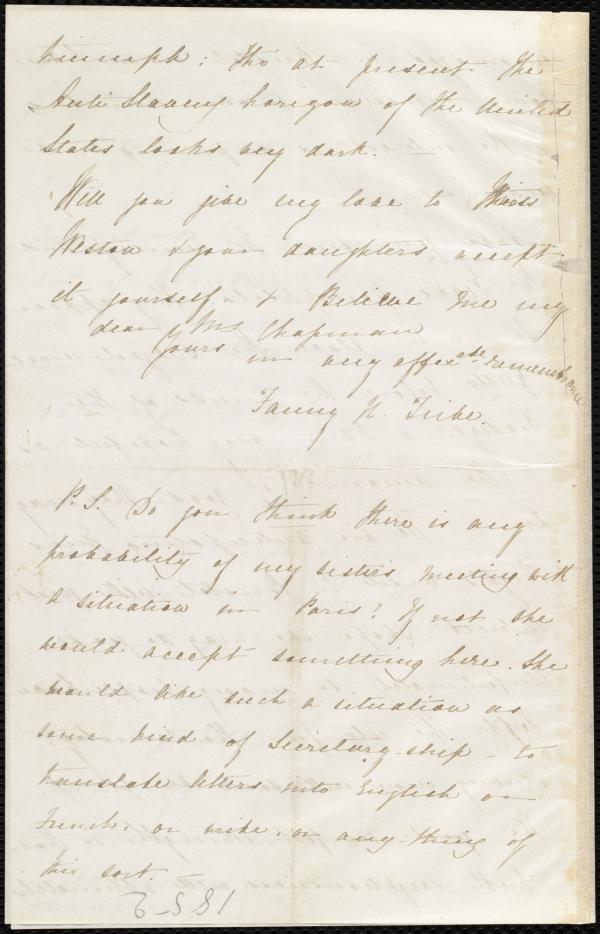 triumph; tho at present the
Anti Slavery horizon of the United
States looks very dark. —
Will you give my love to Miss
Weston & your daughters, accept
it yourself. & Believe me my
dear Mrs Chapman
Yours in very affecate remembrance
Fanny N. Tribe.
P.S. Do you think there is any
probability of my sisters meeting with
a situation in Paris? If not she
would accept something here. She
would like such a situation as
some kind of Secretary-ship – to
translate letters into English or
French, or write, or any-thing of
this sort. —
185-2